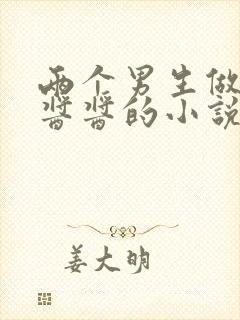 两个男生做
酱酱的小説
姜大明